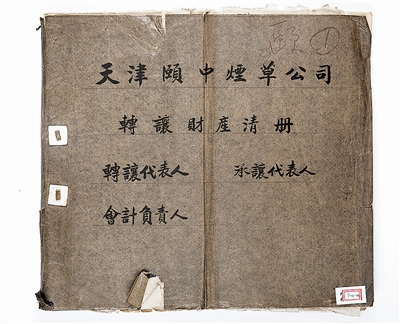 天津頤中煙草公司
轉讓財產清册
轉讓代表人 承讓代表人
會計負責人